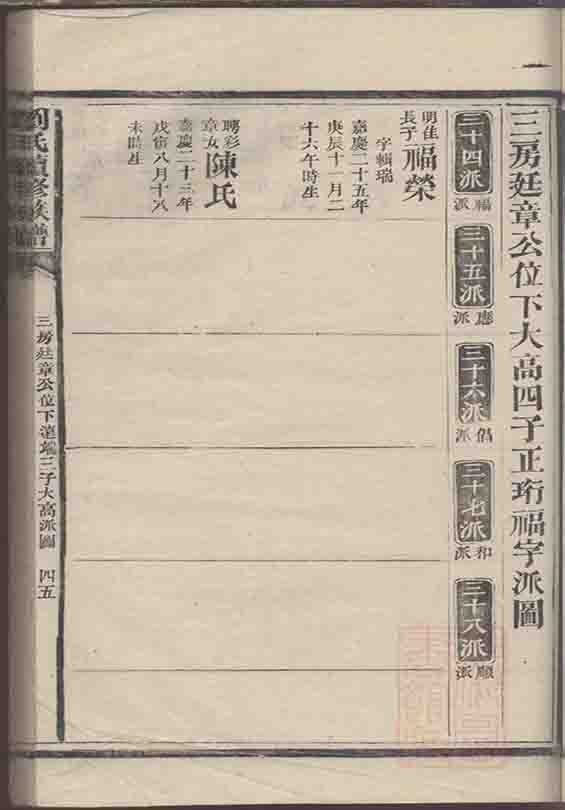 三房廷章公位下大高四子正珩福字派圖
三十四派
福派
三十五派
應派
三十六派
倡派
三十七派
和派
三十八派
順派
明佳長子
福榮
字楨瑞
嘉慶二十五年
庚辰十一月二
十六年時生
聘彩章女
陳氏
嘉慶二十三年
戊寅八月十八
未時生
劉氏續修族譜
三房廷章公位下達端三子大高派圖
四五